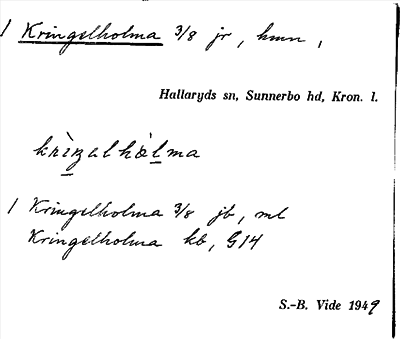 1 Kringelholma 3/8 jr, hmn,
Hallaryds sn, Sunnerbo hd, Kron. l.
krìŋalhòlma
1 Kringelholma 3/8 jb, ml
Kringelholma kb, G14
S.-B. Vide 1949